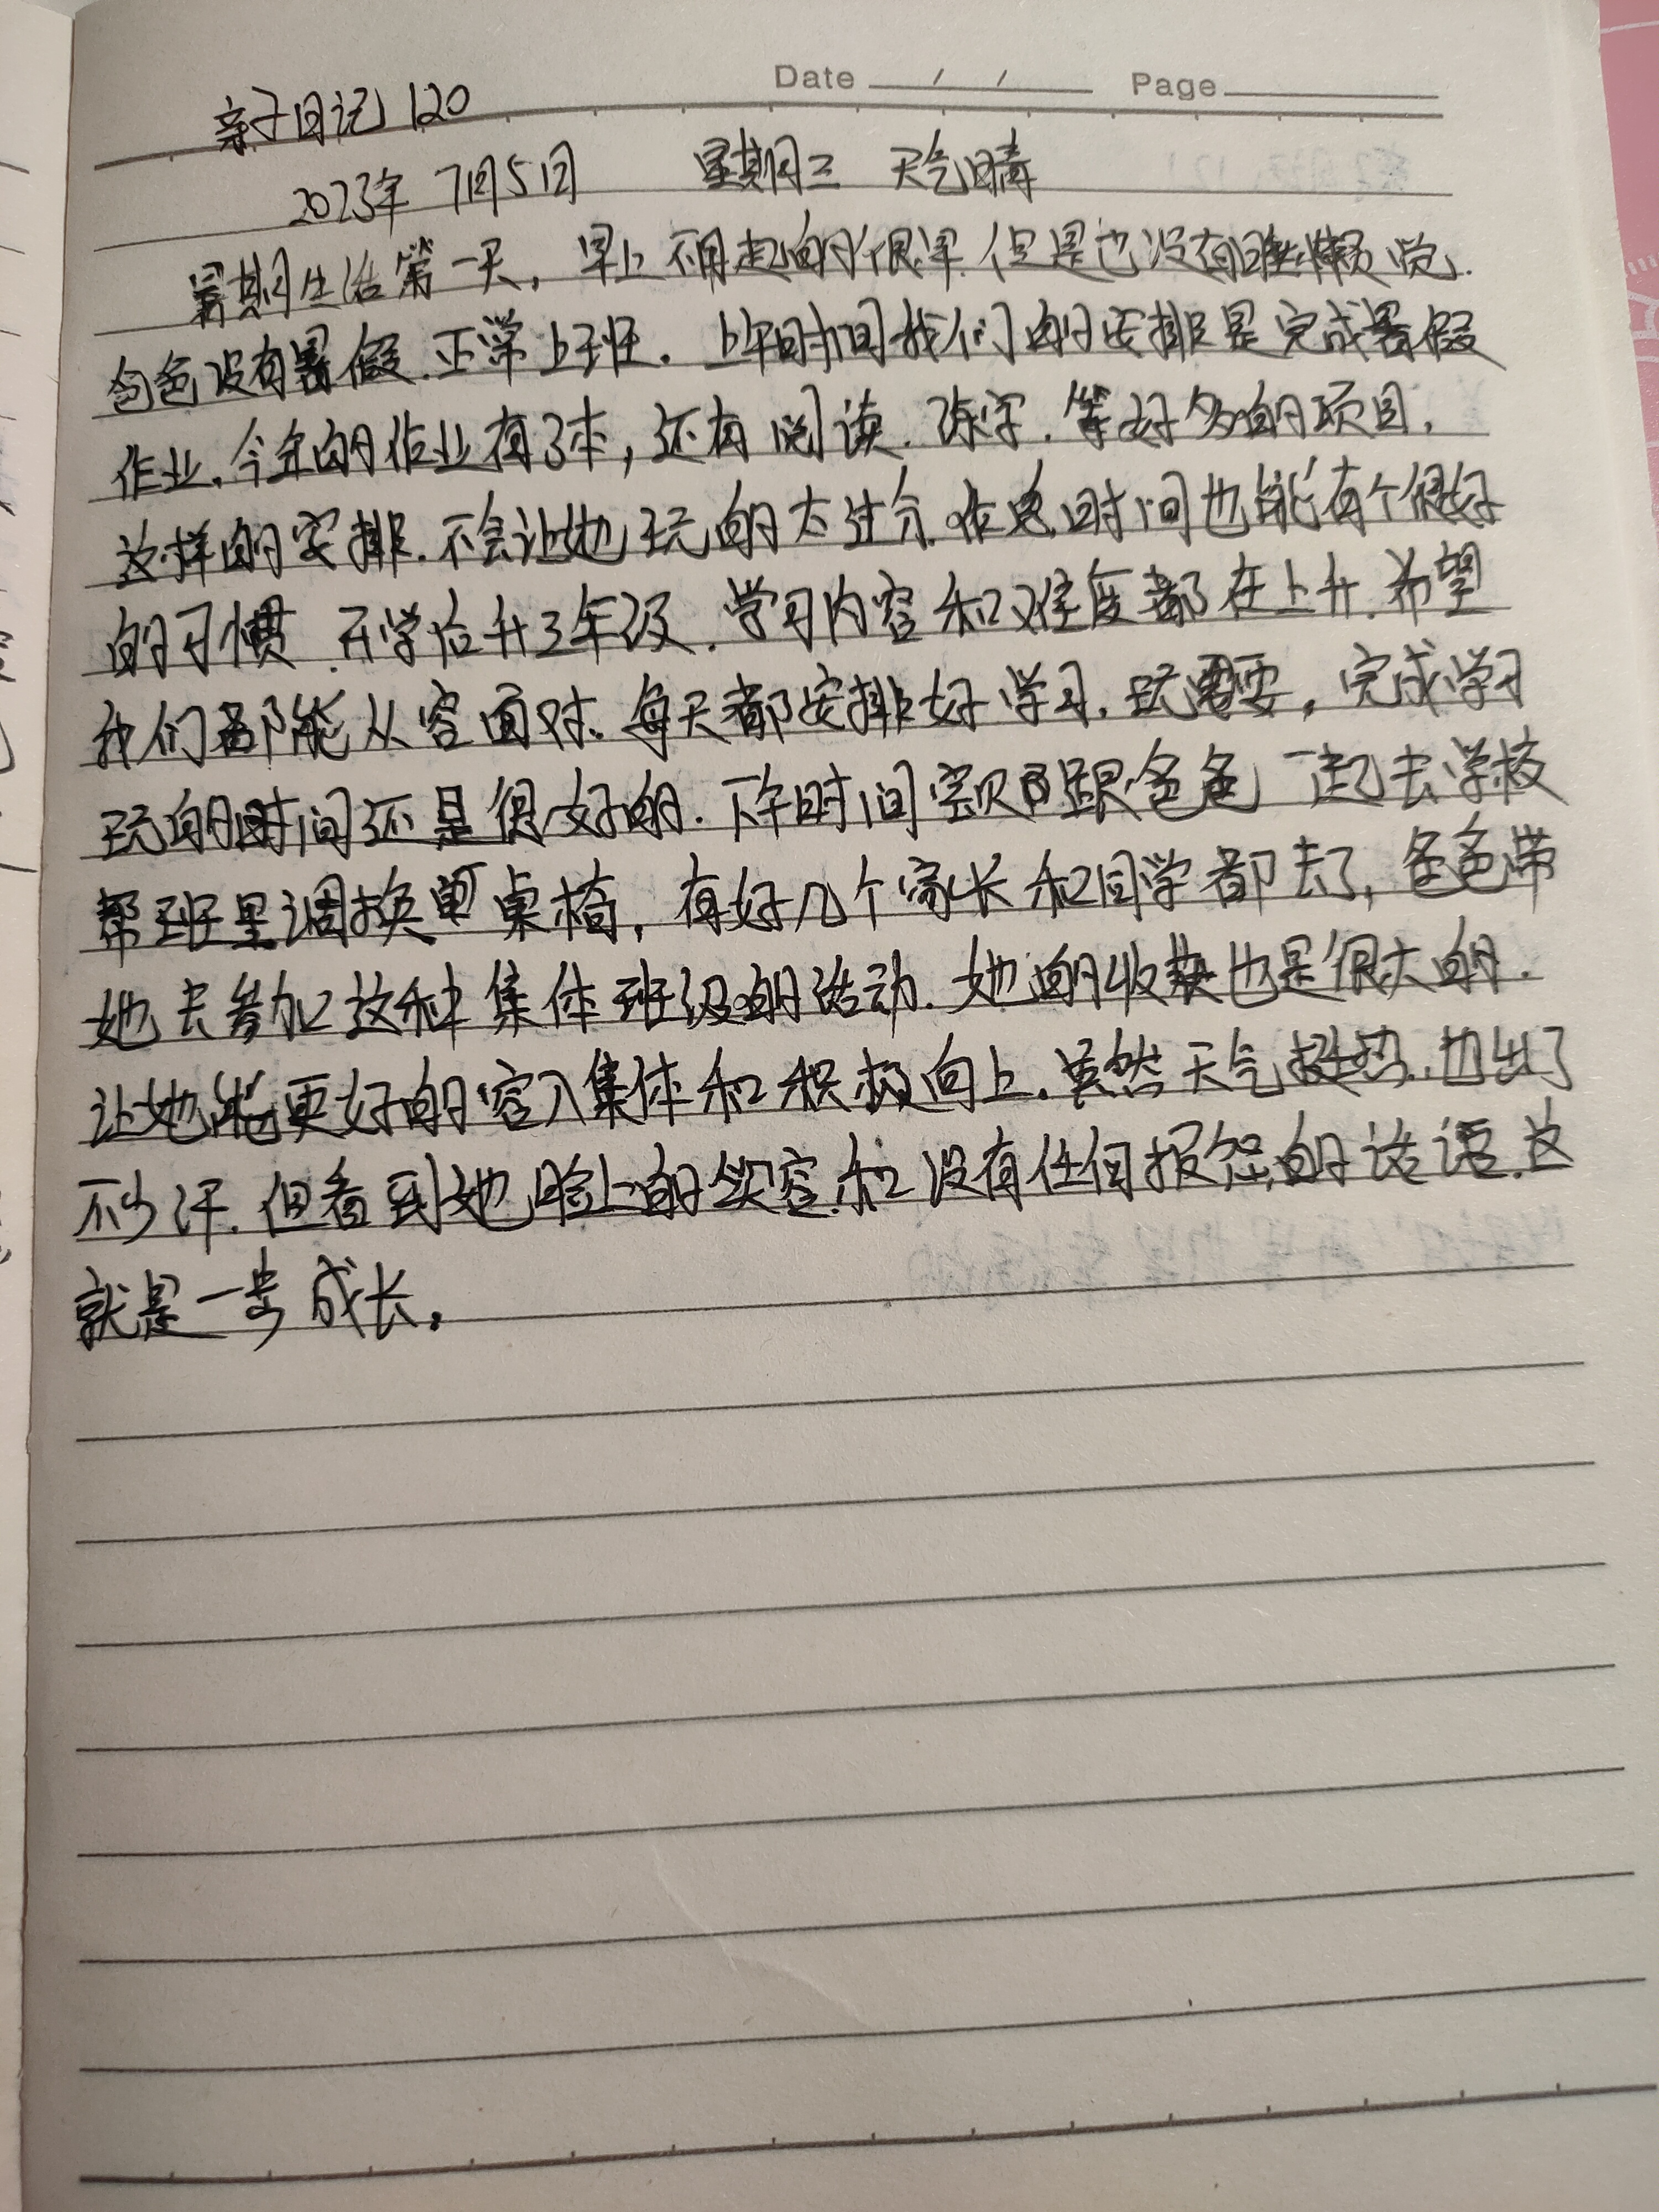 Date / / Page
亲子日记 120
2023年 7月5日 星期三 天气晴
暑期生活第一天，早上不用起的很早.但是也没有睡懒觉.
爸爸没有暑假.正常上班.上午时间我们的安排是完成暑假
作业.今年的作业有3本，还有阅读.练字.等好多的项目.
这样的安排.不会让她玩的太过分.作息时间也能有个很好
的习惯.开学后升3年级.学习内容和难度都在上升.希望
我们都能从容面对.每天都安排好学习.玩需要，完成学习
玩的时间还是很好的.下午时间宝贝跟爸爸一起去学校
帮班里调换桌椅，有好几个家长和同学都去了，爸爸带
她去参加这种集体班级的活动.她的收获也是很大的.
让她能更好的容入集体和积极向上.虽然天气挺热.也出了
不少汗.但看到她脸上的笑容.和没有任何报怨的话语.这
就是一步成长。